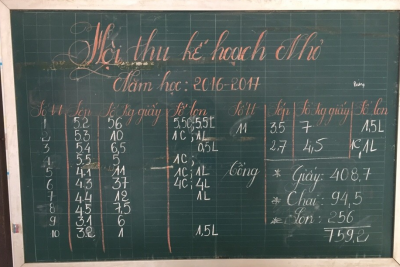 Nội thu kế hoạch Nhỏ
Năm học: 2016-2017
Số TT Lớp Số Kg giấy Số lon Số TT Lớp Số Kg giấy Số lon
1 5.2 56 5,5C; 5,5L 11 3.5 7 1.5L
2 5.3 10 1C; 1L
3 5.4 6,5 0,5L 2.7 4,5 1C, 1L
4 5.5 5 1C;
5 4.1 11 1C; 1L Cộng * Giấy: 408,7
6 4.3 37 4C; 4L
7 4.4 12 1L * Chai: 94,5
8 4.5 7,5
9 3.1 6 * Lon: 256
10 3.2 1 1.5L 759,2